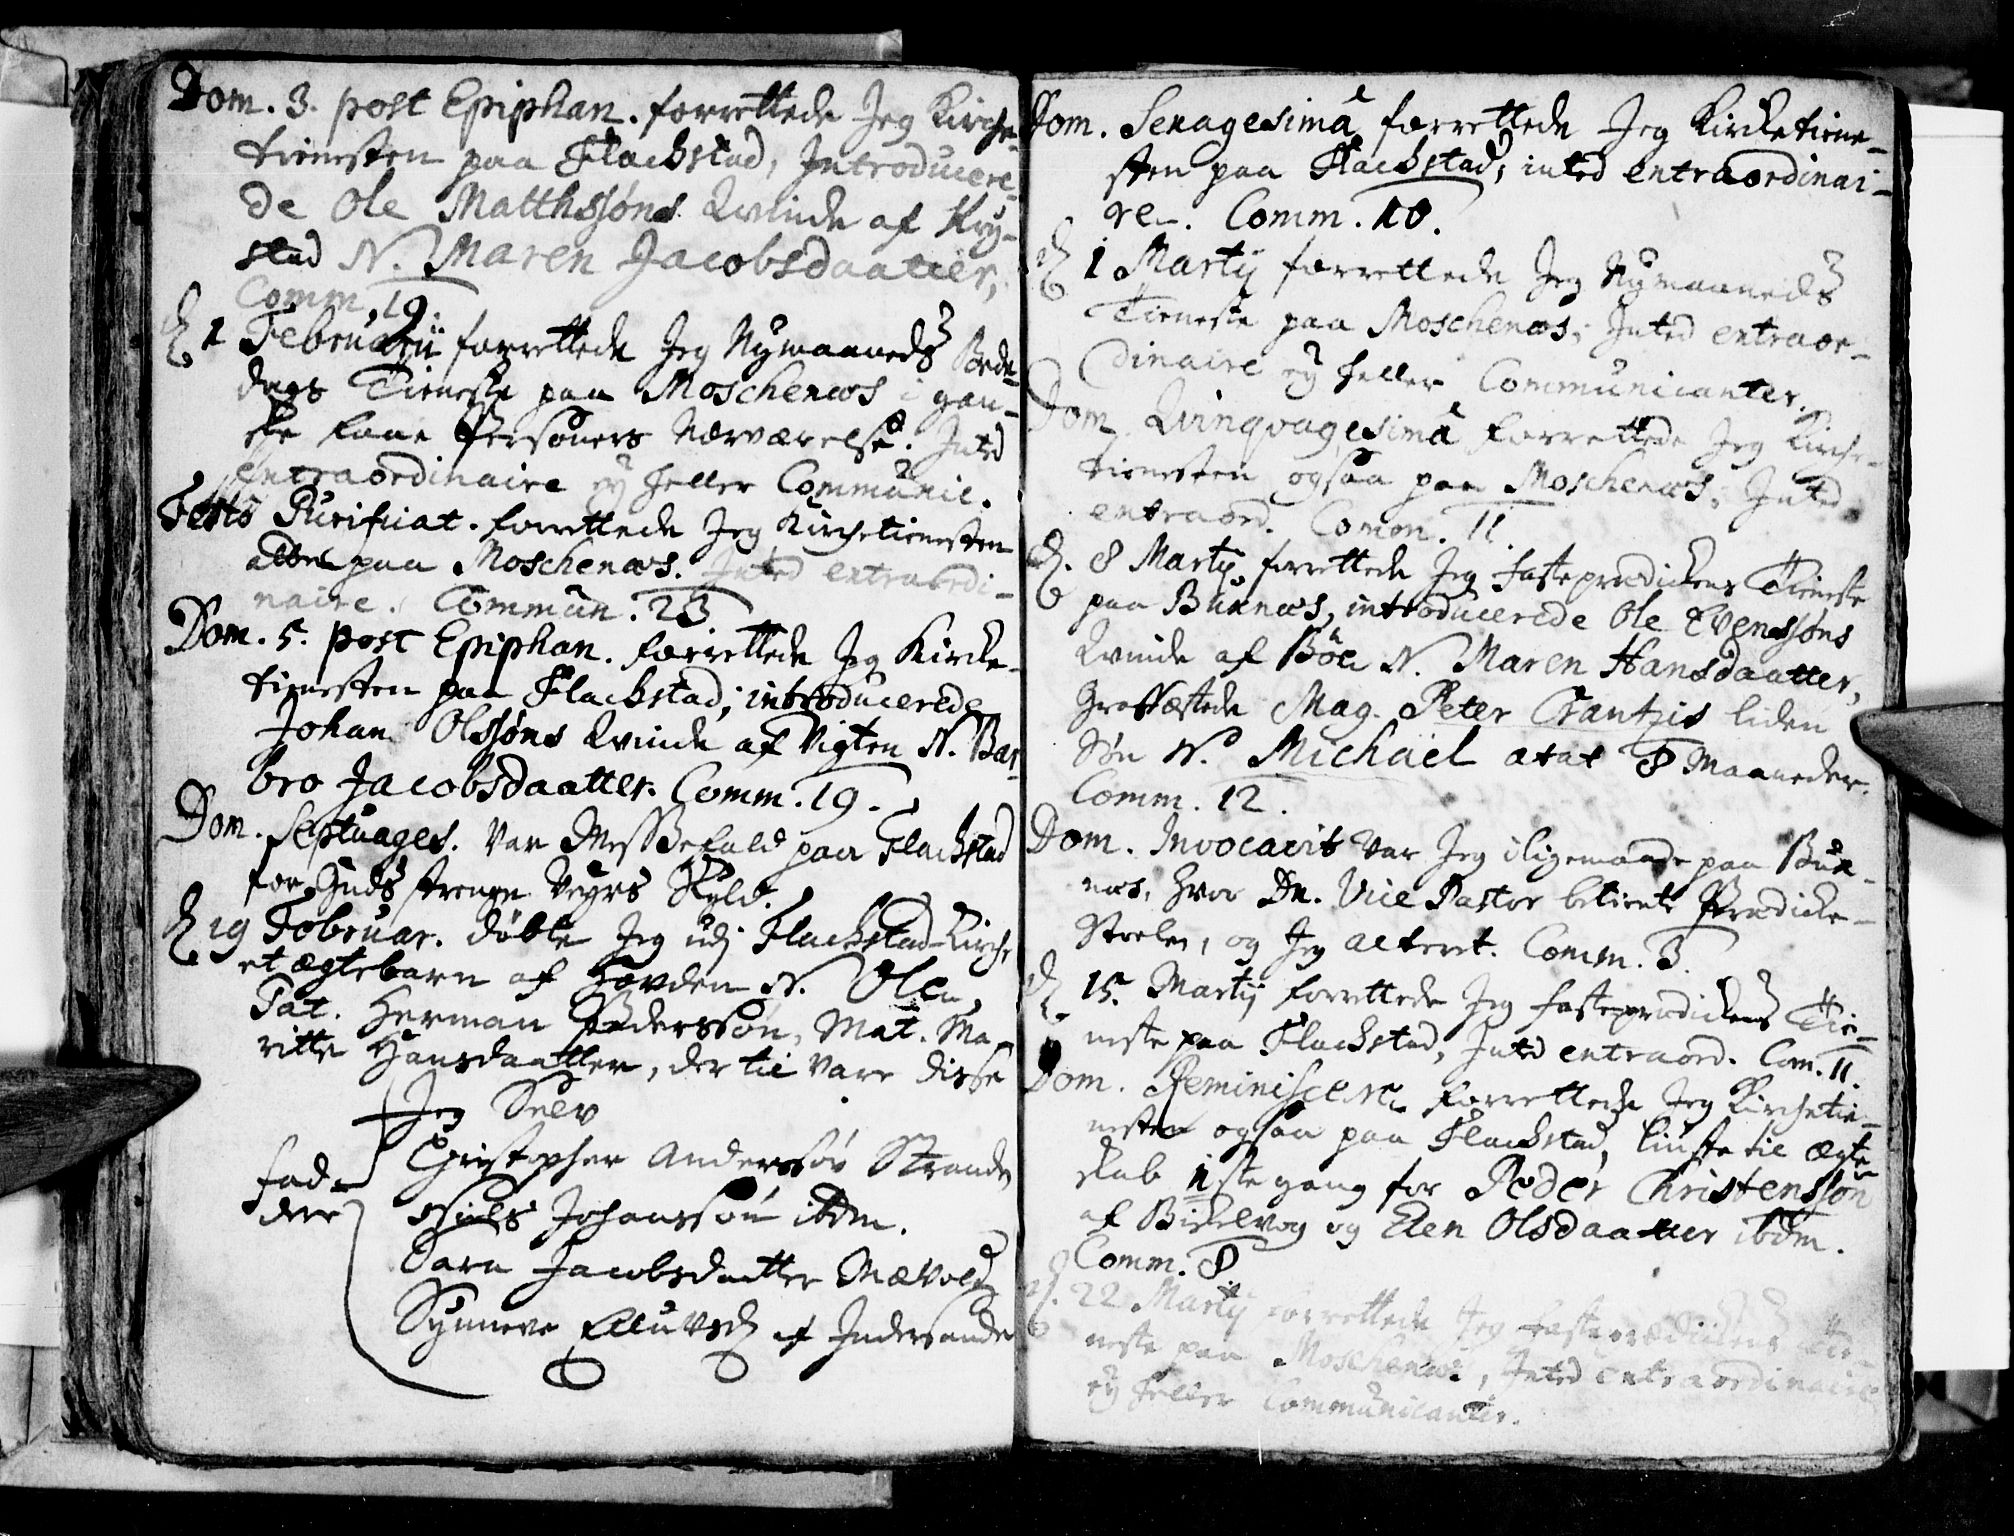 Dom. 3. post Epiphan. forrettede Jeg Kirche-
tienesten paa Flachstad, Introducere-
de Ole Matthssøns Qvinde af Kry-
stad N. Maren Jacobsdaatter,
Comm. 19.
1 Februarii forrettede Jeg Nymaaneds Bede-
dags Tieneste paa Moschenæs i gan-
ske faae Personers Nærværelse. Inted
Extraordinaire ey heller Communic.
Festo Purificat. forrettede Jeg Kirchetienesten
atter paa Moschenæs. Inted extraordi-
naire. Commun. 23
Dom. 5. post Epiphan. forrettede Jeg Kircke-
tienesten paa Flachstad, introducerede
Johan Olssøns Qvinde af Vigten N. Bar-
bro Jacobsdaatter. Comm. 19.
Dom. Septuages. Var Messefald paa Flachstad
for Guds strenge Veyrs Skyld.
19 Februar. døbte Jeg udj Flachstad Kirche
et ægtebarn af N. Ole,
Pat. Herman Pederssøn, Mat. Ma-
ritte Hansdaatter, der til vare disse
Jeg Selv
Fad- Christopher Anderssøn Strande
dere Niels Johanssøn ibdm.
Sara Jacobsdatter Mævold
Synneve af Indersande
Dom. Sexagesimâ forrettede Jeg Kircketiene-
sten paa Flachstad, inted extraordinai-
re. Comm. 10.
1 Martij forrettede Jeg Nymaaneds
Tieneste paa Moschenæs; Inted extraor-
dinaire ey heller Communicanter.
Dom Qvinqvagesimâ forrettede Jeg Kirche-
tienesten ogsaa paa Moschenæs. Inted
extraord. Comm. 11.
8 Martij forrettede Jeg fasteprædickens Tieneste
paa Buxnæs, introducerede Ole Evenssøns
Qvinde af Böe N. Maren Hansdaatter,
Graffæstede Mag. Peter Crantzis liden
Søn N. Michael ætat 8 Maaneder.
Comm. 12.
Dom. Invocavit Var Jeg iligemaade paa Bux-
næs, hvor Dn. Vice Pastor betiente Prædicke-
Stoelen, og Jeg alteret. Comm. 3.
15. Martij forrettede Jeg fasteprædickens Tie-
neste paa Flachstad, Inted extraord. Com. 11.
Dom. Reminiscere forrettede Jeg Kirchetie-
nesten ogsaa paa Flachstad, liuste til ægte-
skab 1ste gang for Peder Christenssøn
af og Elen Olsdaatter ibdm.
Comm. 8
22 Martij forrettede Jeg fasteprædickens Tie-
neste paa Moschenæs, Inted extraordinaire
ey heller Communicanter.